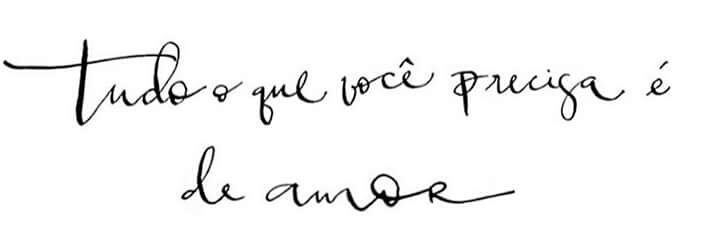 Tudo o que você precisa é
de amor